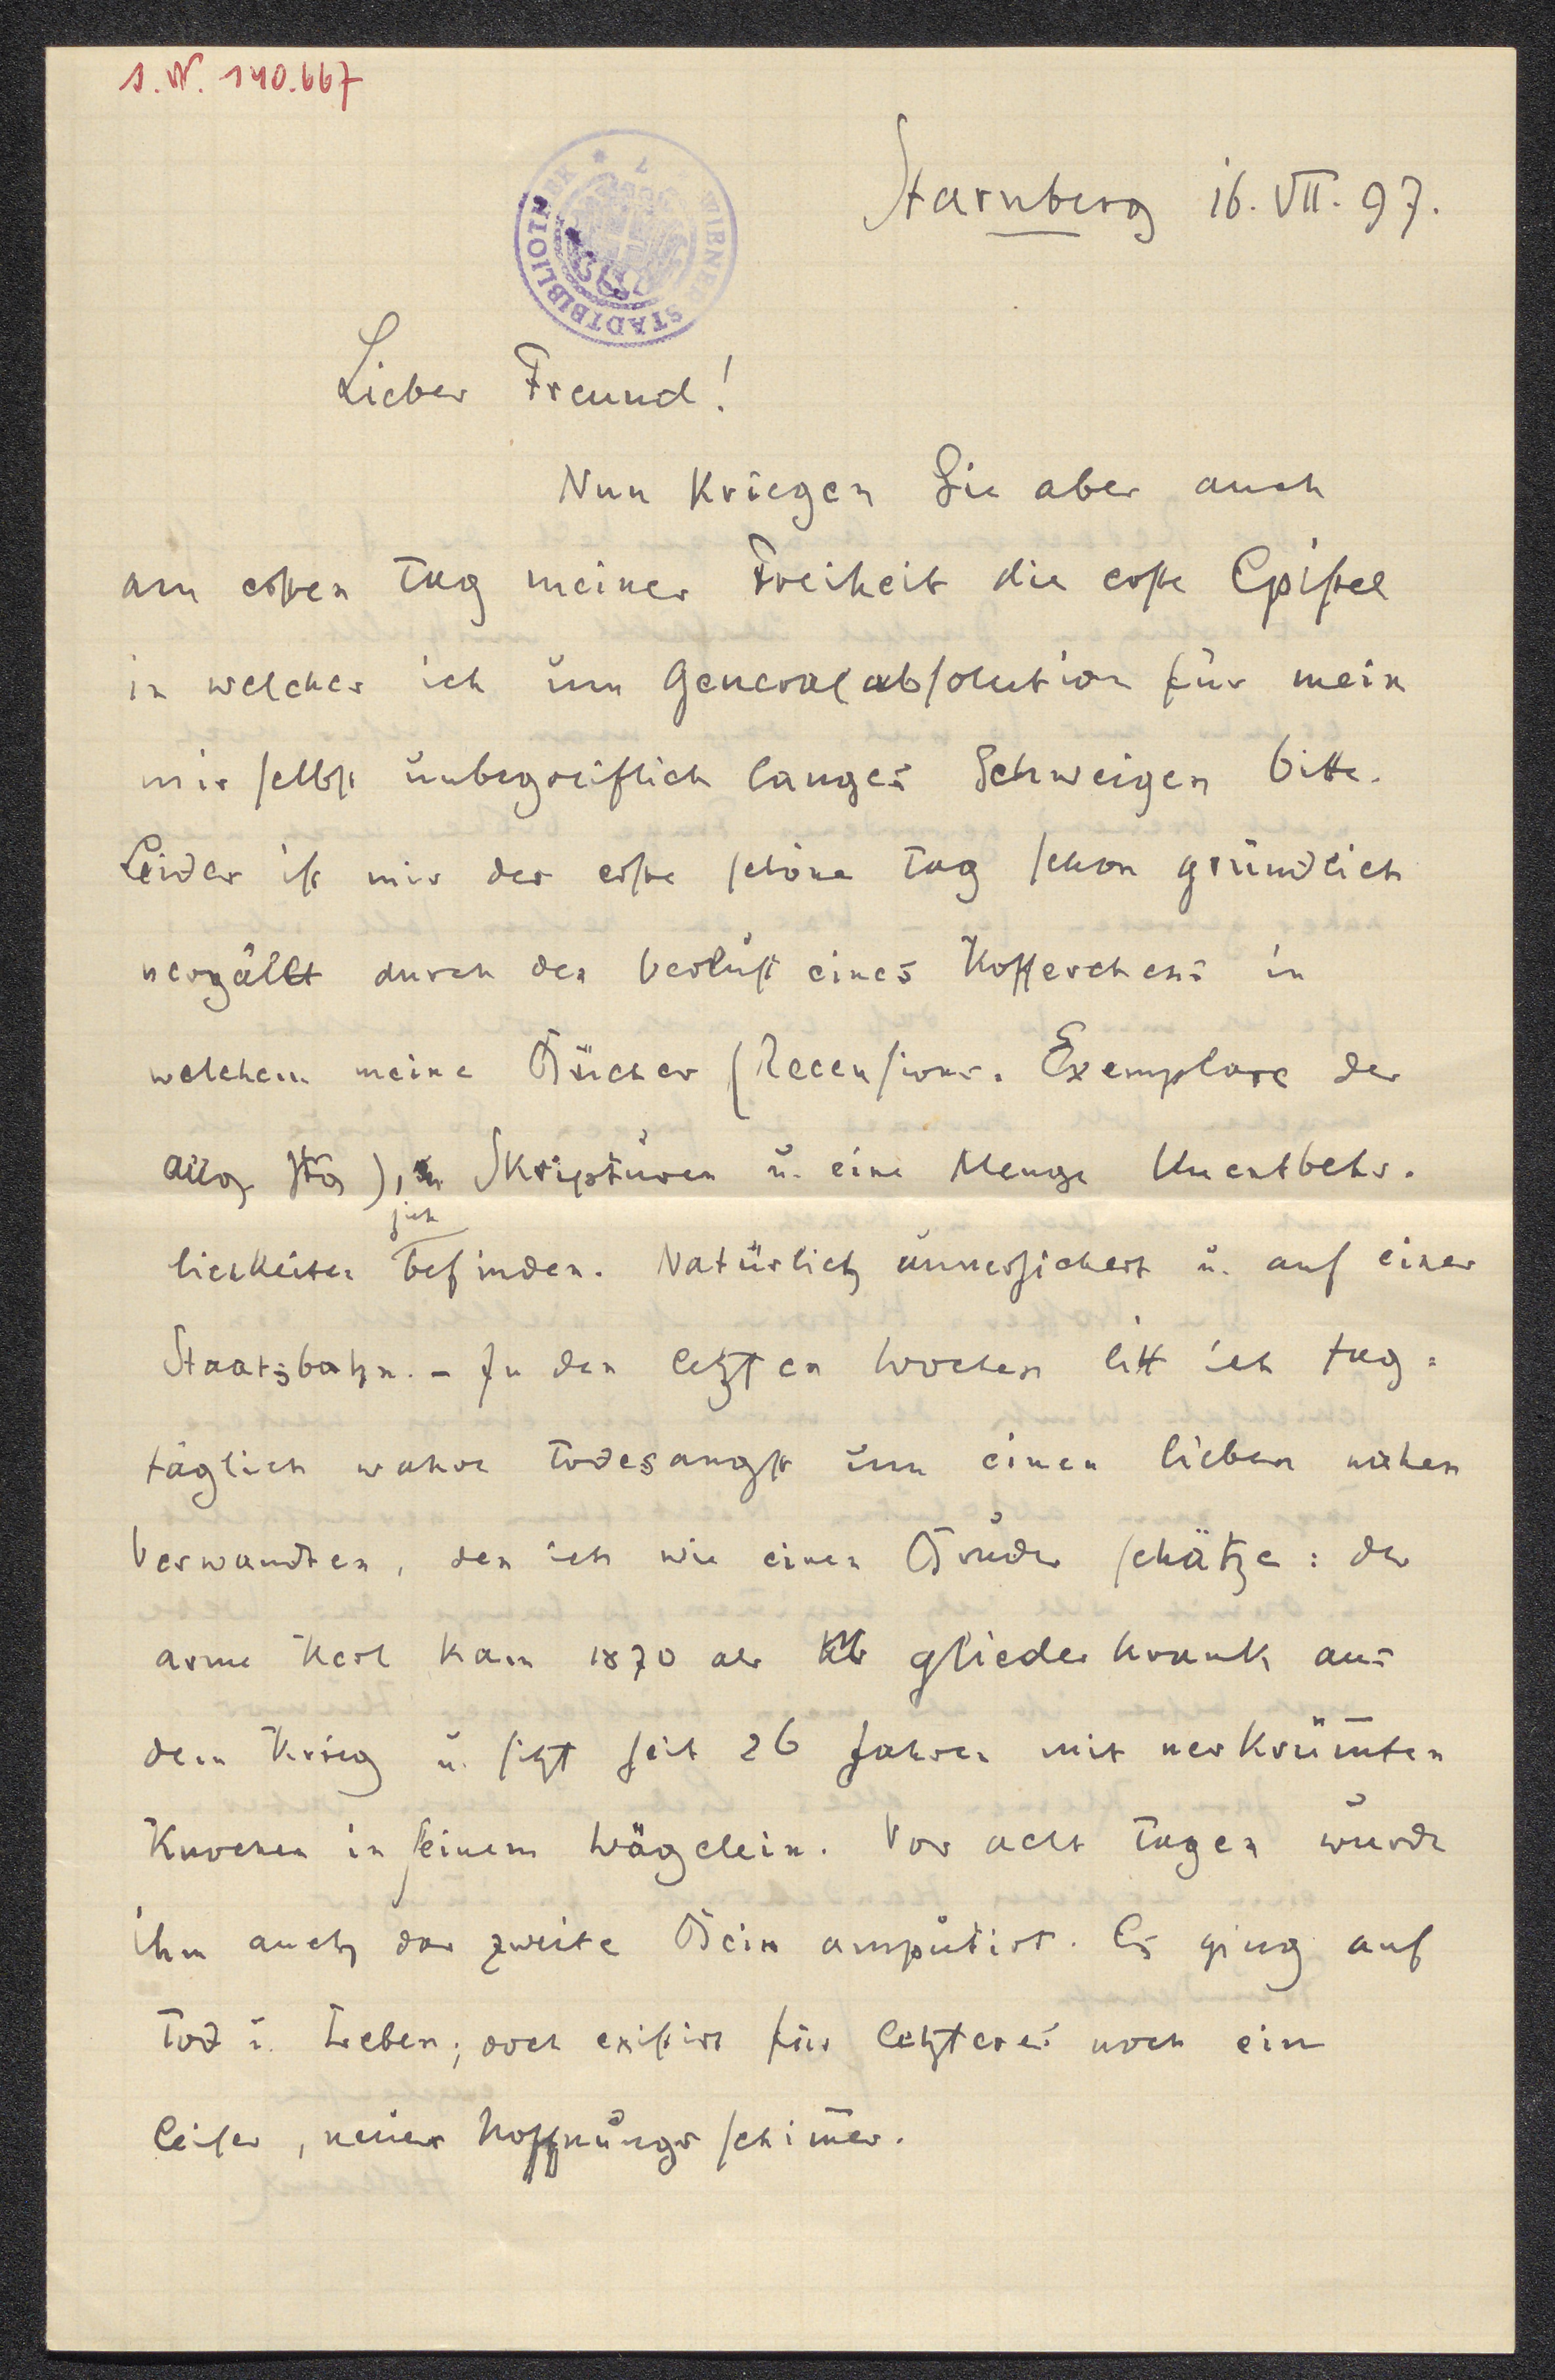 I.N. 140.667
WIENER STADTBIBLIOTHEK
Starnberg 16. VII. 97.
Lieber Freund!
Nun kriegen Sie aber auch
am ersten Tag meiner Freiheit die erste Epistel
in welcher ich um Generalabsolution für mein
mir selbst unbegreiflich langes Schweigen bitte.
Leider ist mir der erste schöne Tag schon gründlich
vergällt durch den Verlust eines Kofferchens in
welchem meine Bücher (Recensions-Exemplare der
Allg Ztg), Skripturen u. eine Menge Unentbehr-
sich
lichkeiten befinden. Natürlich unversichert u. auf einer
Staatsbahn. – In den letzten Wochen litt ich tag=
täglich wahre Todesangst um einen lieben nahen
Verwandten, den ich wie einen Bruder schätze: der
arme Kerl kam 1870 als gliederkrank aus
dem Krieg u. sitzt seit 26 Jahren mit verkrüm̄ten
Knochen in seinem Wägelein. Vor acht Tagen wurde
ihm auch das zweite Bein amputirt. Es ging auf
Tod u. Leben; doch existirt für letzteres noch ein
leiser, neuer Hoffnungsschim̄er.